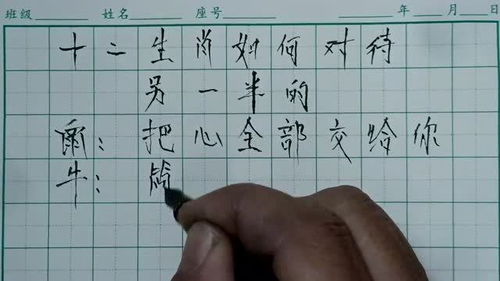 班级 姓名 座号 年 月 日
十二生肖如何对待
另一半的
鼠：把心全部交给你
牛：